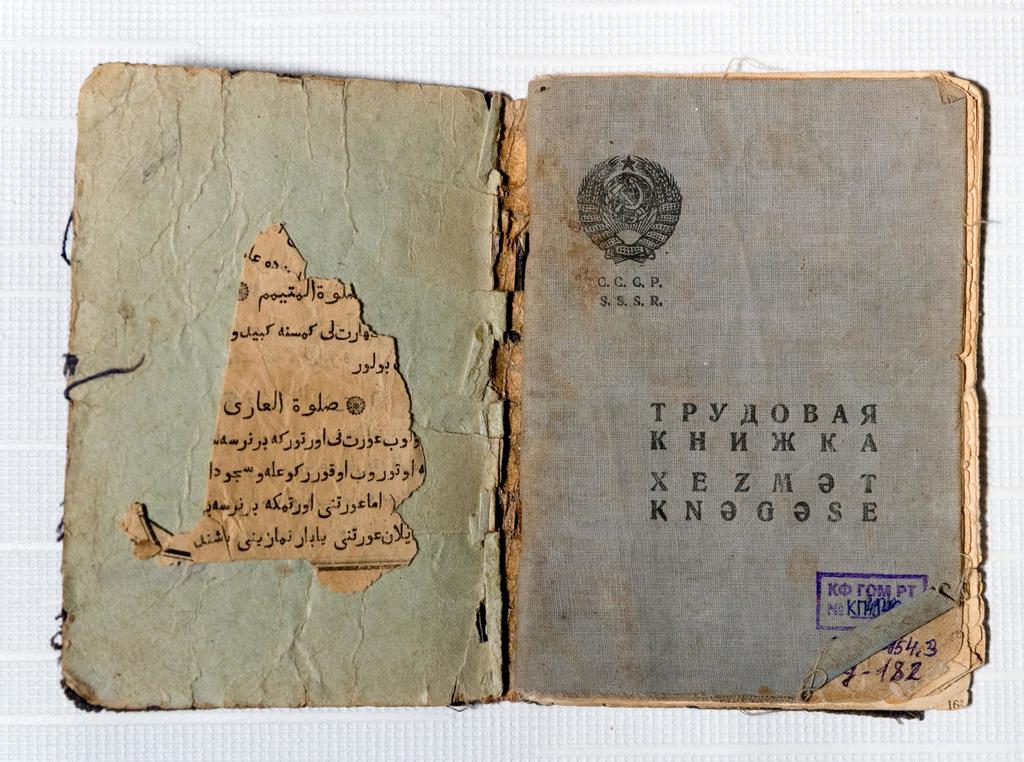 صلوة المتيمم
كمسنه كبيدو
بولور
صلوة العارى
اوب عورتنى اورتوركه بر نرسه
اوتوروب اوقور ركوع له و سجود
اما عورتنى اورتمكه بر نرسه
عورتنى يابار نمازينى
С. С. С. Р.
S. S. S. R.
ТРУДОВАЯ
КНИЖКА
XEZMƏT
KNƏGƏSE
КФ ГОМ РТ
№
154.3
д-182
16